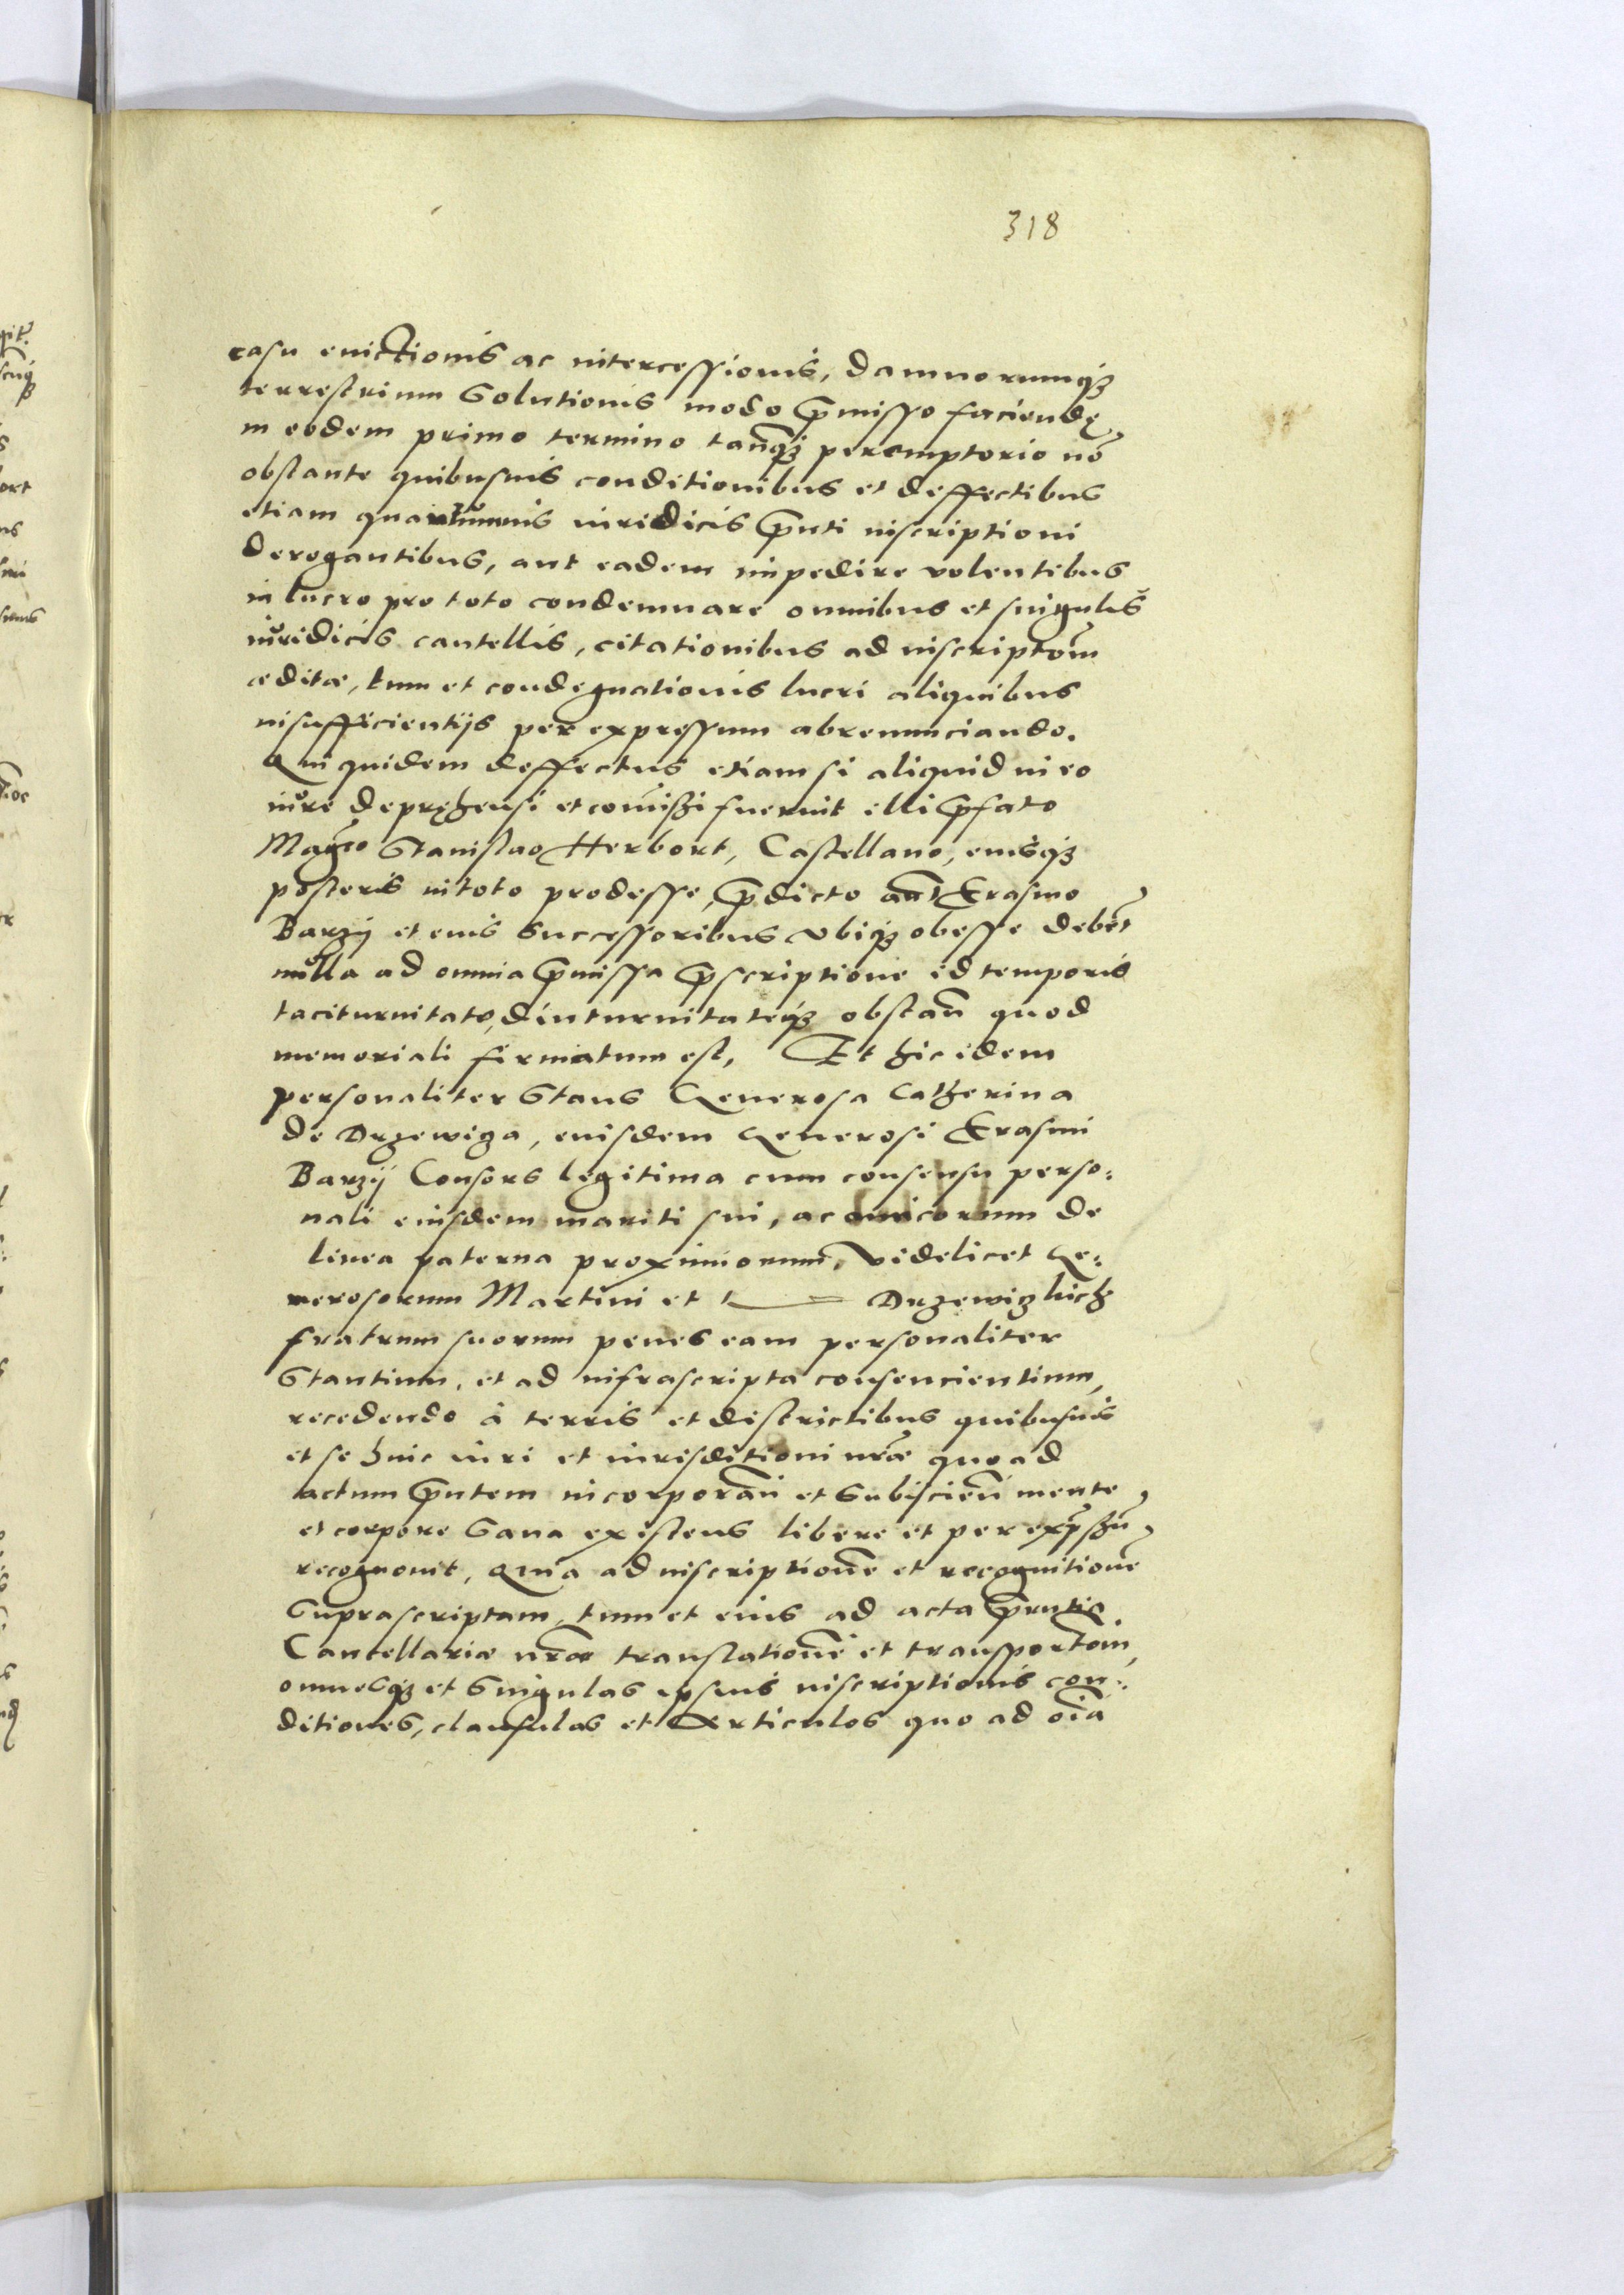 318
casu evictionis ac intercessionis, damnorumqȝ
terrestrium Solutionis modo p̄misso faciendę
in eodem primo termino tanq̄ȝ peremptorio nō
obstante quibusuis conditionibus et deffectibus
etiam quantumuis iuridicis p̄nti inscriptioni
derogantibus, aut eadem impedire volentibus
in lucro pro toto condemnare omnibus et singulis
iuridicis cautellis, citationibus ad inscriptōm
æditæ, tum et condegnationis lucri aliquibus
insufficientijs per expressum abrenunciando.
Qui quidem deffectus etiam si aliquid in eo
iure depręhensi et com̄issi fuerint illi p̄fato
Magco Stanislao Herbort, Castellano, eiusqȝ
posteris in toto prodesse, p̄dicto aut̄ Erasmo
Barzij et eius Successoribus vbiqȝ obesse debēt
nulla ad omnia p̄missa p̄scriptione id temporis
taciturnitate, diuturnitateqȝ obstan̄ quod
memoriali firmatum est, Et hic idem
personaliter Stans Generosa Catherina
de Drzewiza, eiusdem Generosi Erasmi
Barzij Consors legitima cum consensu perso:
nali eiusdem mariti sui, ac amicorum de
linea paterna proximiorum, videlicet Ge:
nerosorum Martini et Drzewizkich
fratrum suorum penes eam personaliter
Stantium, et ad infrascripta consencientium,
recedendo à terris et districtibus quibusuis
et se huic iuri et iurisditioni nr̄æ quoad
actum p̄ntem incorporan̄ et Subiscien̄ mente
et corpore Sana existens libere et per exp̄ssū
recognouit, Quia ad inscriptionē et recognitionē
Suprascriptam, tum et eius ad acta p̄ntia
Cancellariæ nr̄æ translationē et transportōm,
omnesqȝ et Singulas ipsius inscriptionis con:
ditiones, clausulas et Articulos quo ad oīa